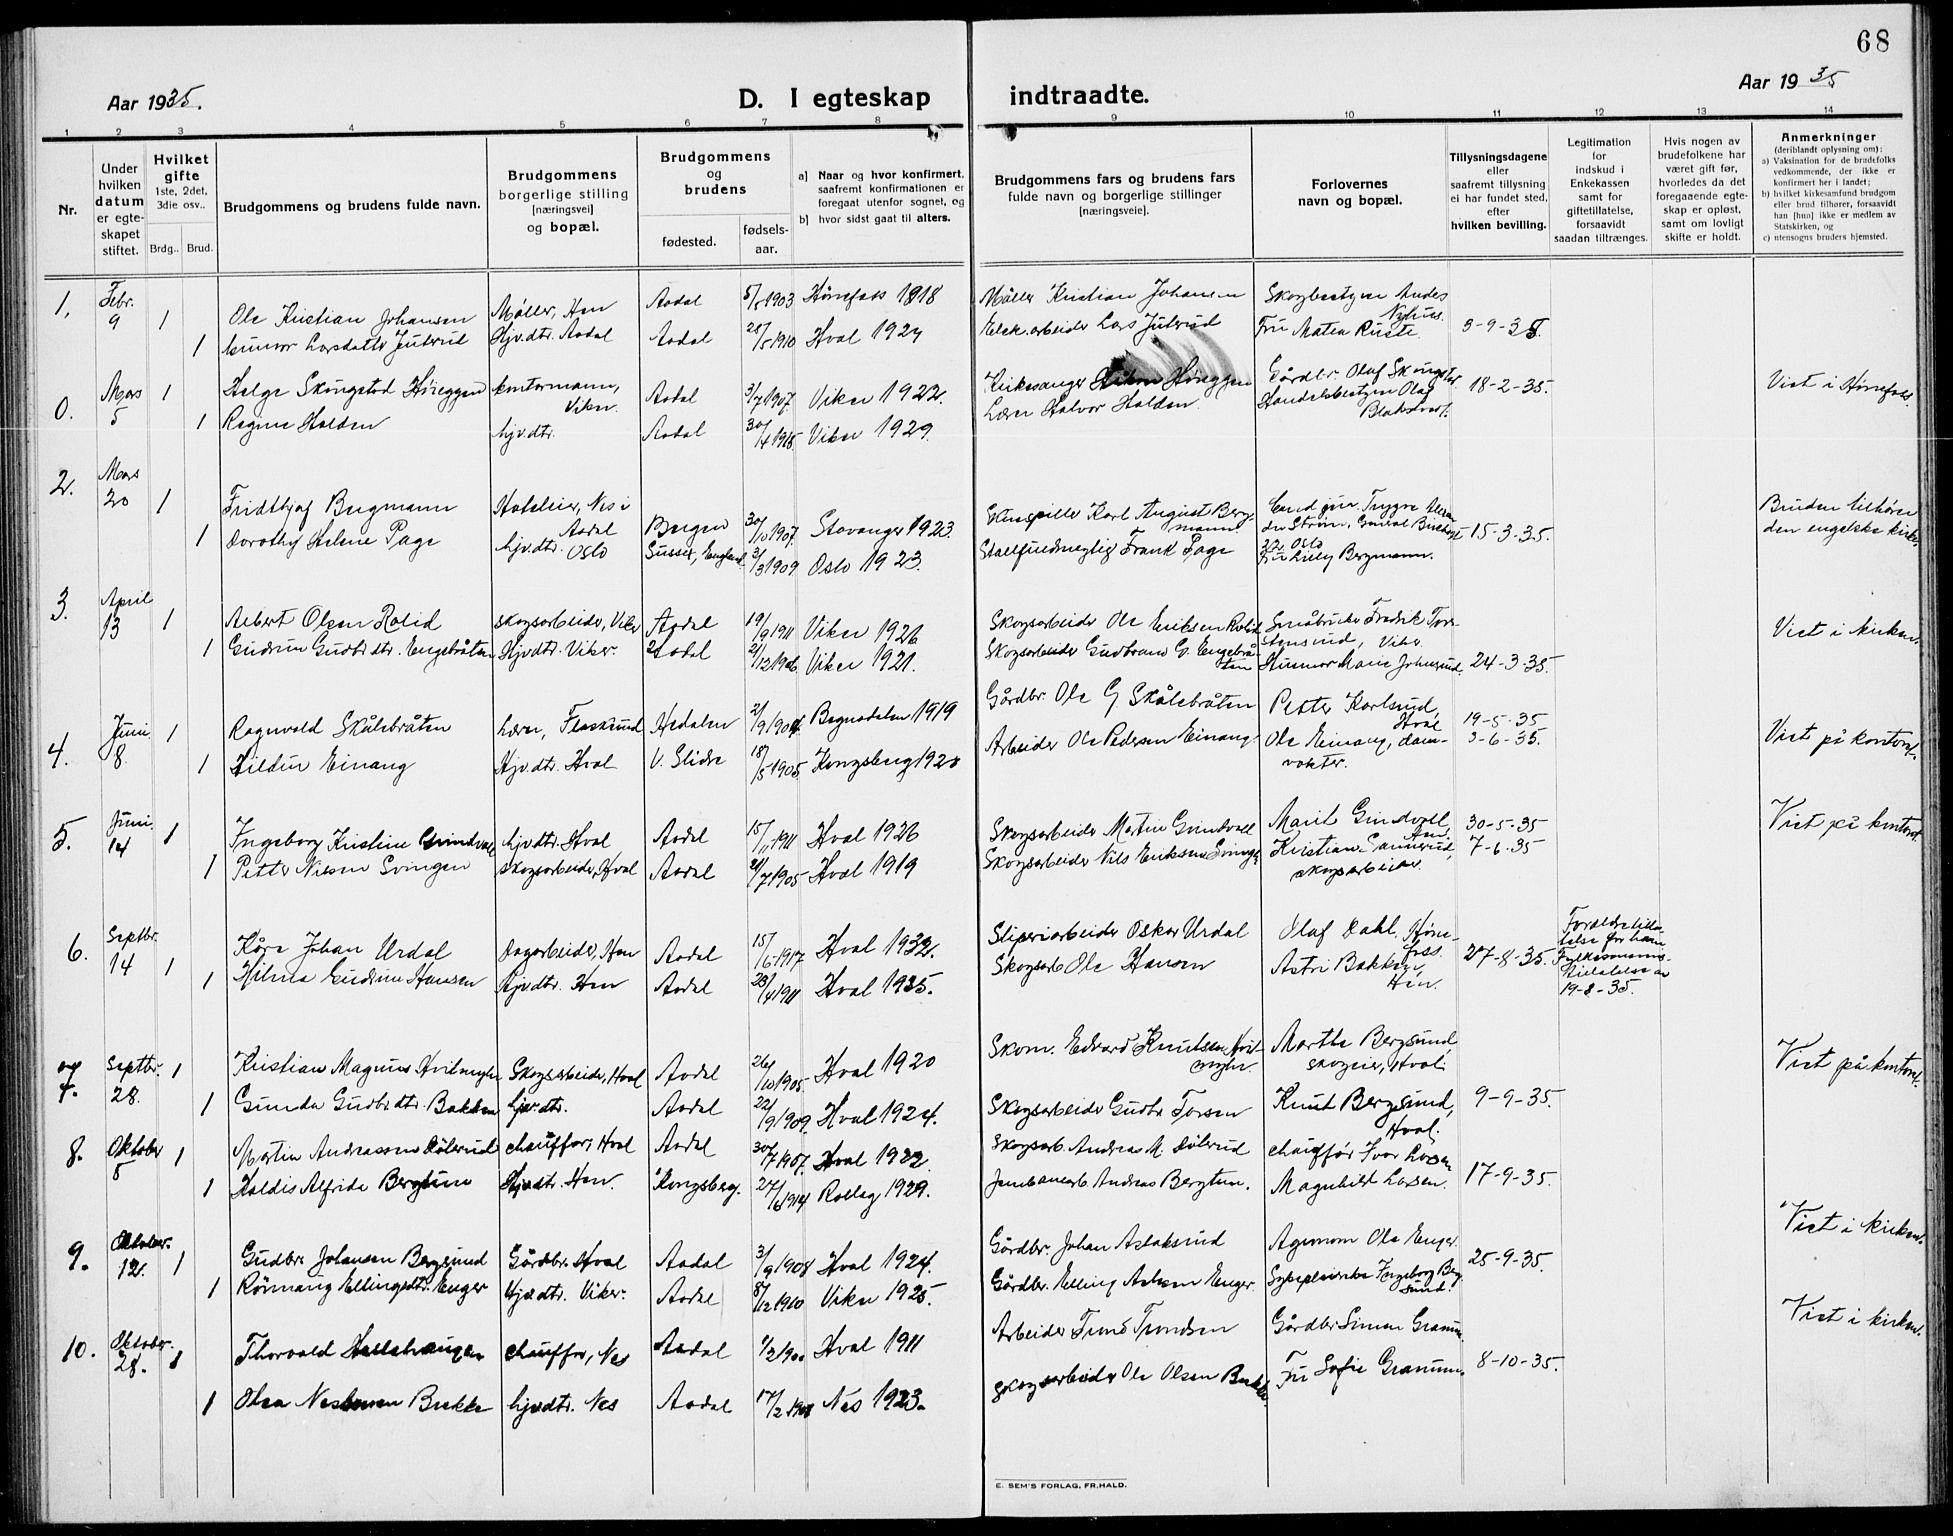 68
Aar 1935.
D. I egteskap indtraadte.
Aar 1935
1 2 3 4 5 6 7 8 9 10 11 12 13 14
Nr.
Under hvilken datum er egteskapet stiftet.
Hvilket gifte
1ste, 2det, 3die osv..
Brdg.. Brud.
Brudgommens og brudens fulde navn.
Brudgommens borgerlige stilling [næringsvei] og bopæl.
Brudgommens og brudens
fødested.
fødsels-aar.
a) Naar og hvor konfirmert, saafremt konfirmationen er foregaat utenfor sognet, og
b) hvor sidst gaat til alters.
Brudgommens fars og brudens fars fulde navn og borgerlige stillinger [næringsveie].
Forlovernes navn og bopæl.
Tillysningsdagene eller saafremt tillysning ei har fundet sted, efter hvilken bevilling.
Legitimation for indskud i Enkekassen samt for giftetillatelse, forsaavidt saadan tiltrænges.
Hvis nogen av brudefolkene har været gift før, hvorledes da det foregaaende egteskap er opløst, samt om lovligt skifte er holdt.
Anmerkninger
(deriblandt oplysning om):
a) Vaksination for de brudefolks vedkommende, der ikke er konfirmert her i landet;
b) hvilket kirkesamfund brudgom eller brud tilhører, forsaavidt han [hun] ikke er medlem av Statskirken, og
c) utensogns bruders hjemsted.
1. Febr. 9 1 Ole Kristian Johansen Møller, Hen Aadal 5/5 1903 Hønefoss 1918 Møller Kristian Johansen Skogbestyrer Nyhus.
1 Larsdatter Jutrud Hjv.dtr. Aadal Aadal 28/5 1910 Hval 1924 Elek.arbeider Lars Jutrud Fru Matea Ruste
0. Mars 5 1 Helge Skungstad Høieggen kontormann, Viker. Aadal 3/7 1907. Viker 1922. Kirkesanger Høieggen Gårdbr. Olaf 18-2-35. Viet i Hønefoss.
1 Ragna Halden hjv.dtr. Aadal 30/4 1915 Viker 1929. Lærer Halvor Halden Handelsbestyrer Olaf
2. Mars 20 1 Fridthjof Bergmann Hoteleier, Nes i Aadal Bergen 30/10 1907. Stavanger 1923. Karl August Bergmann Cand. jur. Trygve 15-3-35. Bruden tilhører
1 Dorothy Helene Page hjv.dtr. Oslo Sussex, England 3/3 1909 Oslo 1923. Frank Page Fru Lilly Bergmann. den engelske kirke.
3. April 13 1 Albert Olsen Rolid skogsarbeider, Viker Aadal 19/9 1911 Viker 1926 Skogsarbeider Ole Eriksen Rolid Småbruker Fredrik Torstensrud, Viker
1 Gudrun Gudbr.dtr. Engebråten Hjv.dtr. Viker. Aadal 21/12 1906 Viker 1921. Skogsarbeider Gudbrand G. Engebråten Husmor Marie 24-3-35. Viet i kirken.
4. Juni 8. 1 Ragnvald Skålebråten Lærer, Hedalen 21/9 1904 Begnadalen 1919 Gårdbr. Ole G Skålebråten Petter Karlsrud, Hval 19-5-35
1 Hildur Einang Hjv.dtr. Hval V. Slidre 18/5 1905 Kongsberg 1920 Arbeider Ole Pedersen Einang Ole Einang, damvokter. 3-6-35. Viet på kontoret.
5. Juni 14 1 Ingeborg Kristine Grindvoll hjv.dtr. Hval Aadal 15/11 1911 Hval 1926 Skogsarbeider Martin Grindvoll Marit Grindvoll 30-5-35 Viet på kontoret.
1 Petter Nilsen Svingen skogsarbeider, Hval Aadal 21/7 1905 Hval 1919 Skogsarbeider Nils Eriksen Svingen Kristian Sannerud, skogsarbeider. 7-6-35
6. Septbr. 14 1 Kåre Johan Urdal Dagarbeider, Hen Aadal 15/6 1917 Hval 1932. Sliperiarbeider Oskar Urdal Olaf Dahl, Hønefoss. 27-8-35.
1 Hilma Gudrun Hansen Hjv.dtr. Hen Aadal 23/4 1911 Hval 1925. Skogsarb. Ole Hansen Astri Bakken, Hen. 19-8-35.
7. Septbr. 28. 1 Kristian Magnus Skogsarbeider, Hval Aadal 26/10 1905. Hval 1920 Skom. Edvard Knutsen Marthe Bergsund skogeier, Hval. Viet på kontoret.
1 Gunda Gudbr.dtr. Bakken hjv.dtr. Aadal 22/9 1909. Hval 1924. Skogsarbeider Gudbr. Torsen Knut Bergsund, Hval. 9-9-35.
8. Oktober 5 1 Martin Andreassen Dølerud chauffør, Hval Aadal 30/7 1907. Hval 1922. Skogsarb. Andreas M. Dølerud chauffør Ivar Larsen
1 Haldis Alfride Bergtun Hjv.dtr. Hen. Kongsberg. 27/6 1914 Rollag 1929. Jernbanearb. Andreas Bergtun. Magnhild Larsen. 17-9-35.
9. Oktober. 12. 1 Gudbr. Johansen Bergsund Gårdbr. Hval Aadal 3/9 1908 Hval 1924. Gårdbr. Johan Aslaksrud Agronom Ole Enger. 25-9-35. Viet i kirken.
1 Rønnaug Ellingsdtr. Enger Hjv.dtr. Viker. Aadal 8/12 1910 Viker 1925. Gårdbr. Elling Enger. Sykepleierske Ingeborg Bergsund.
10. Oktober. 28. 1 Thorvald chauffør, Nes Aadal 1/2 1900 Hval 1911 Arbeider Trond Trondsen Gårdbr. Simen Granum Viet i kirken.
1 Olea Brekke hjv.dtr. Nes Aadal 17/2 1908 Nes 1923. Skogsarbeider Ole Olsen Brekke Fru Sofie Granum. 8-10-35.
E. SEM'S FORLAG, FR.HALD.